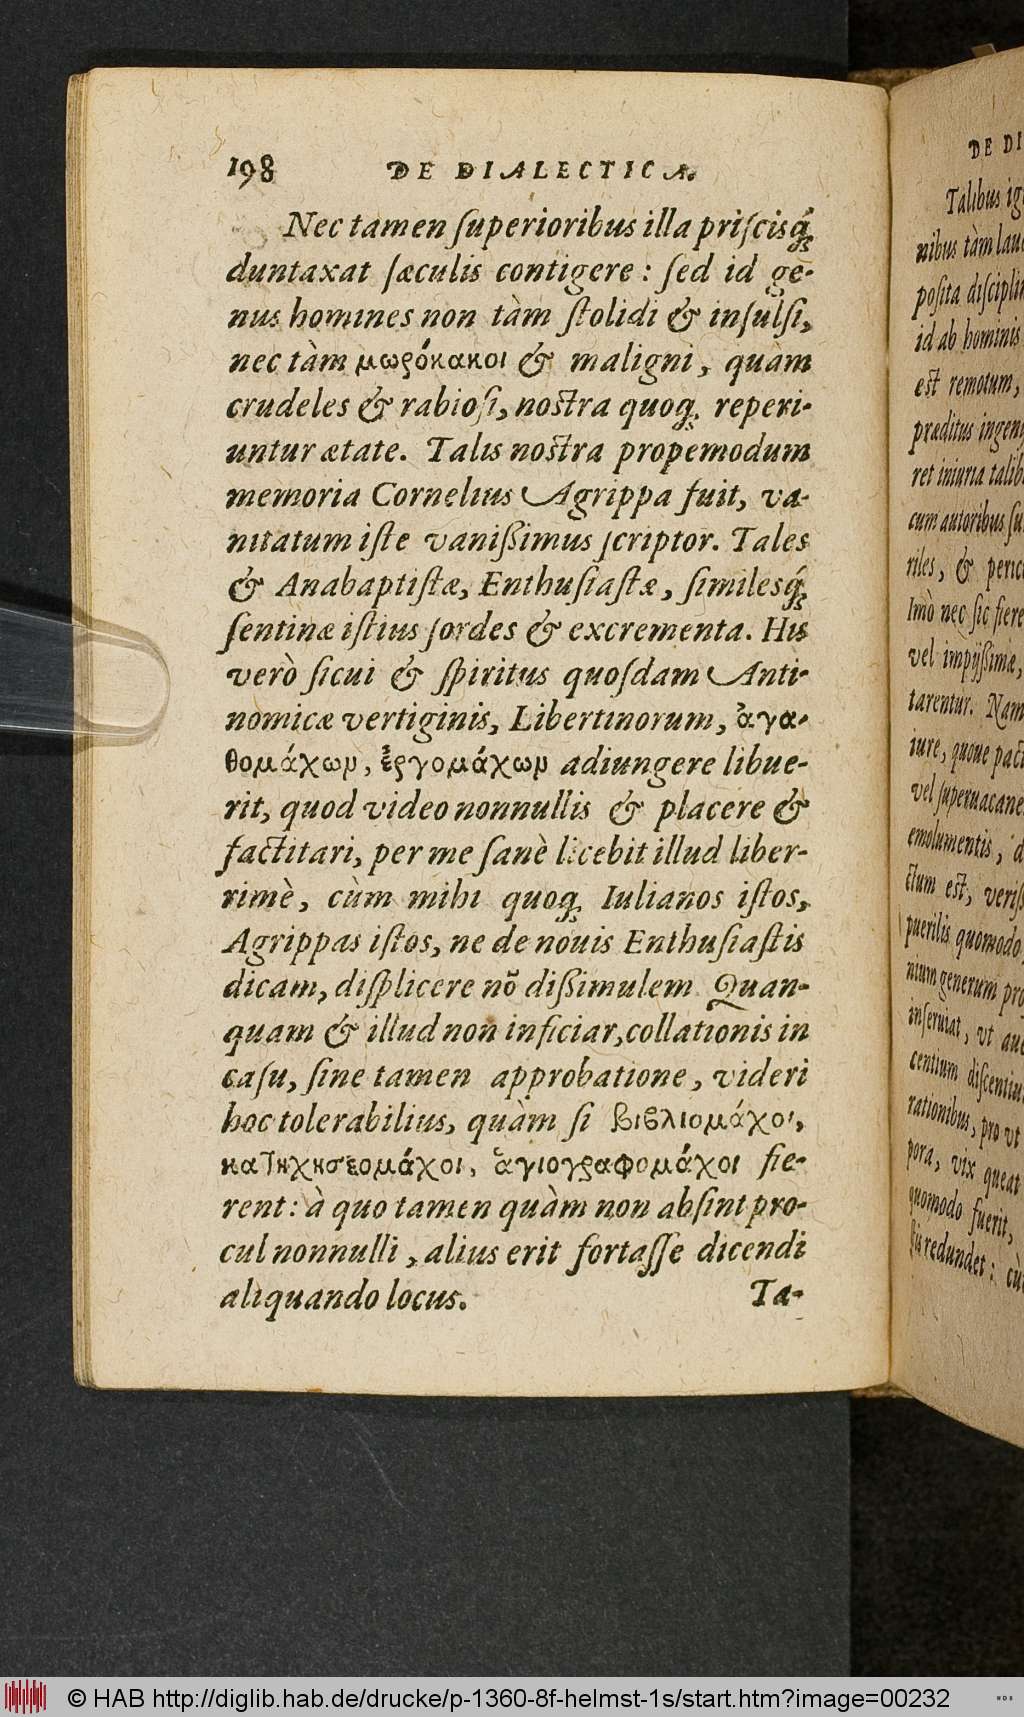 198 DE DIALECTICA.
Nec tamen ſuperioribus illa priſcisq́;
duntaxat ſæculis contigere: ſed id ge-
nus homines non tàm ſtolidi & inſulſi,
nec tàm μωρόκακοι & maligni, quàm
crudeles & rabioſi, noſtra quoq; reperi-
untur ætate. Talis noſtra propemodum
memoria Cornelius Agrippa fuit, va-
nitatum iſte vanißimus ſcriptor. Tales
& Anabaptiſtæ, Enthuſiaſtæ, ſimilesq́;
ſentinæ iſtius ſordes & excrementa. His
verò ſicui & ſpiritus quoſdam Anti-
nomicæ vertiginis, Libertinorum, ἀγα-
θομάχων, ἐργομάχων adiungere libue-
rit, quod video nonnullis & placere &
factitari, per me ſanè licebit illud liber-
rimè, cùm mihi quoq; Iulianos iſtos,
Agrippas iſtos, ne de nouis Enthuſiaſtis
dicam, diſplicere nõ dißimulem. Quan-
quam & illud non inficiar, collationis in
caſu, ſine tamen approbatione, videri
hoc tolerabilius, quàm ſi βιβλιομάχοι,
κατηχησεομάχοι, ἁγιογραφομάχοι fie-
rent: à quo tamen quàm non abſint pro-
cul nonnulli, alius erit fortaſſe dicendi
aliquando locus. Ta-
DE DI
Talibus ig
nibus tàm lau
poſita diſcipli
id ab hominis
est remotum,
præditus ingen
ret iniuria talib
cum autoribus ſu
riles, & peric
Imò nec ſic fiere
vel impijßimæ,
tarentur. Nam
iure, quoue pact
vel ſuperuacane
emolumentis, d
ctum est, veriſ
puerilis quomodo
nium generum pro
inſeruiat, vt aue
centium diſcentiu
rationibus, pro vt
pora, vix queat
quomodo fuerit,
ſis redundet: cù
© HAB http://diglib.hab.de/drucke/p-1360-8f-helmst-1s/start.htm?image=00232